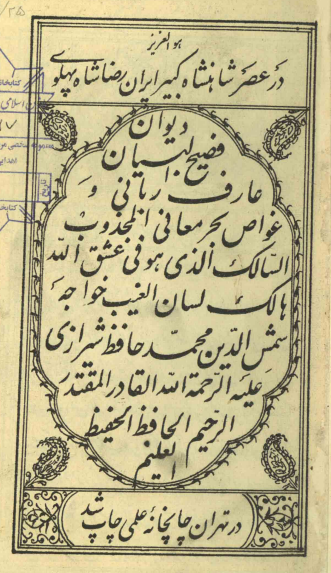 هو العزیز
در عصر شاهنشاه کبیر ایران رضا شاه پهلوی
دیوان
فصیح البیان
عارف ربانی و
غواص بحر معانی المجذوب
السالک الذی هو فی عشق الله
هالک لسان الغیب خواجه
شمس الدین محمد حافظ شیرازی
علیه الرحمة الله القادر المقتدر
الرحیم الحافظ الحفیظ
العلیم
در تهران چاپخانه علمی چاپ شد